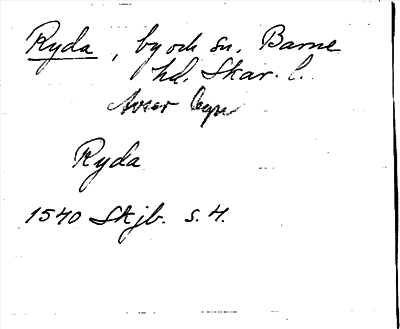 Ryda, by och sn. Barne
hd. Skar. l.
Avser byn
Ryda
1540 Skjb. s. 4.